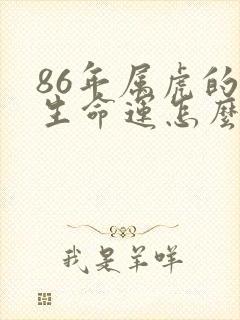 86年属虎的
生命运怎麽
我是羊咩